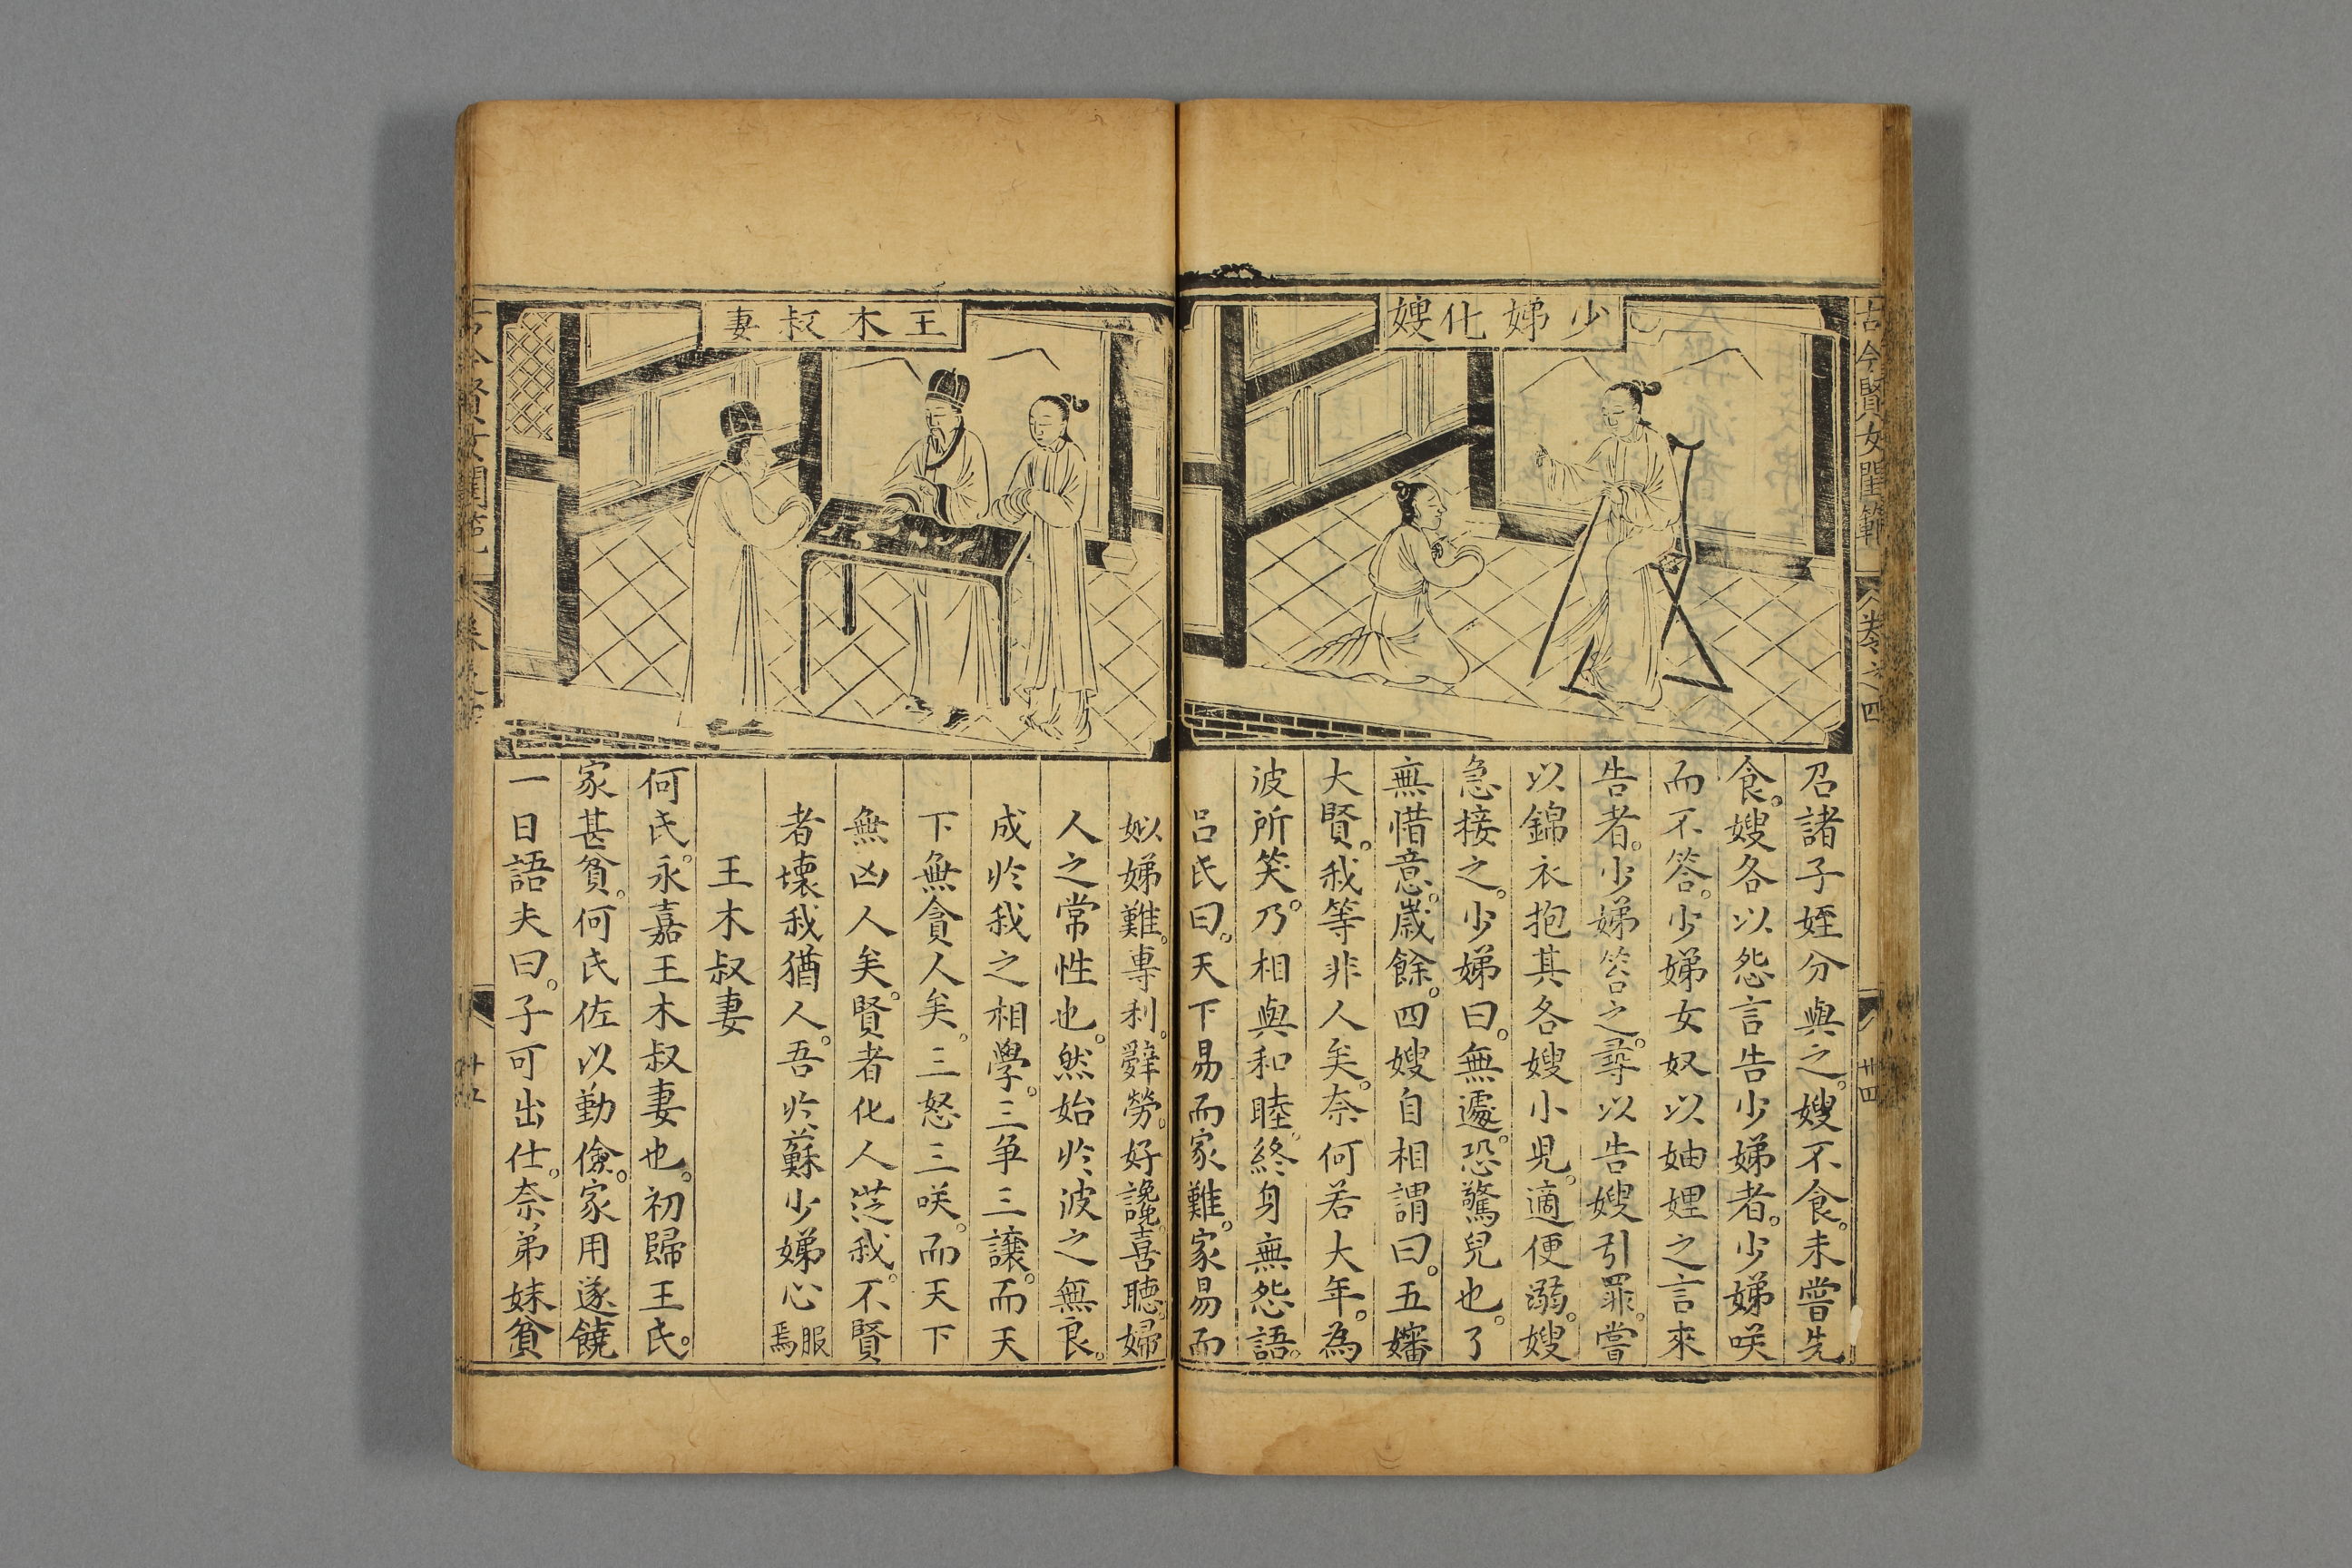 古今賢女閨範
卷之四
廿四
少娣化嫂
召諸子姪分與之。嫂不食。未嘗先
食。嫂各以怨言告少娣者。少娣咲
而不答。少娣女奴以妯娌之言來
告者。少娣笞之。尋以告嫂引罪。嘗
以錦衣抱其各嫂小児。適便溺。嫂
急接之。少娣曰。無遽。恐驚兒也。了
無惜意。歲餘。四嫂自相謂曰。五嬸
大賢。我等非人矣。奈何若大年。為
波所笑。乃相與和睦。終身無怨語。
呂氏曰。天下易而家難。家易而
王木叔妻
姒娣難。專利。辭勞。好讒。喜聽。婦
人之常性也。然始於波之無良。
成於我之相學。三争三讓。而天
下無貪人矣。三怒三咲。而天下
無凶人矣。賢者化人從我。不賢
者壞我猶人。吾於蘇少娣心服焉
王木叔妻
何氏。永嘉王木叔妻也。初歸王氏。
家甚貧。何氏佐以勤儉。家用遂饒
一日語夫曰。子可出仕。奈弟妹貧